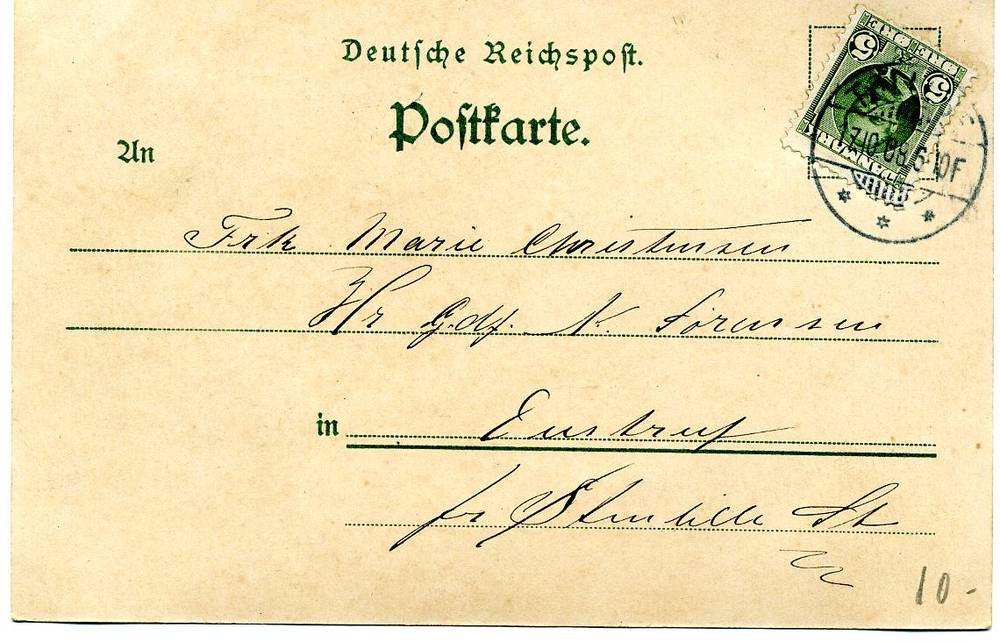 Deutsche Reichspost.
Postkarte.
An
5 5
17.10.08.6-10F
Frk Marie Christensen
Hr Gdf. N. Sørensen
in Enstrup
pr Stenlille St
10-